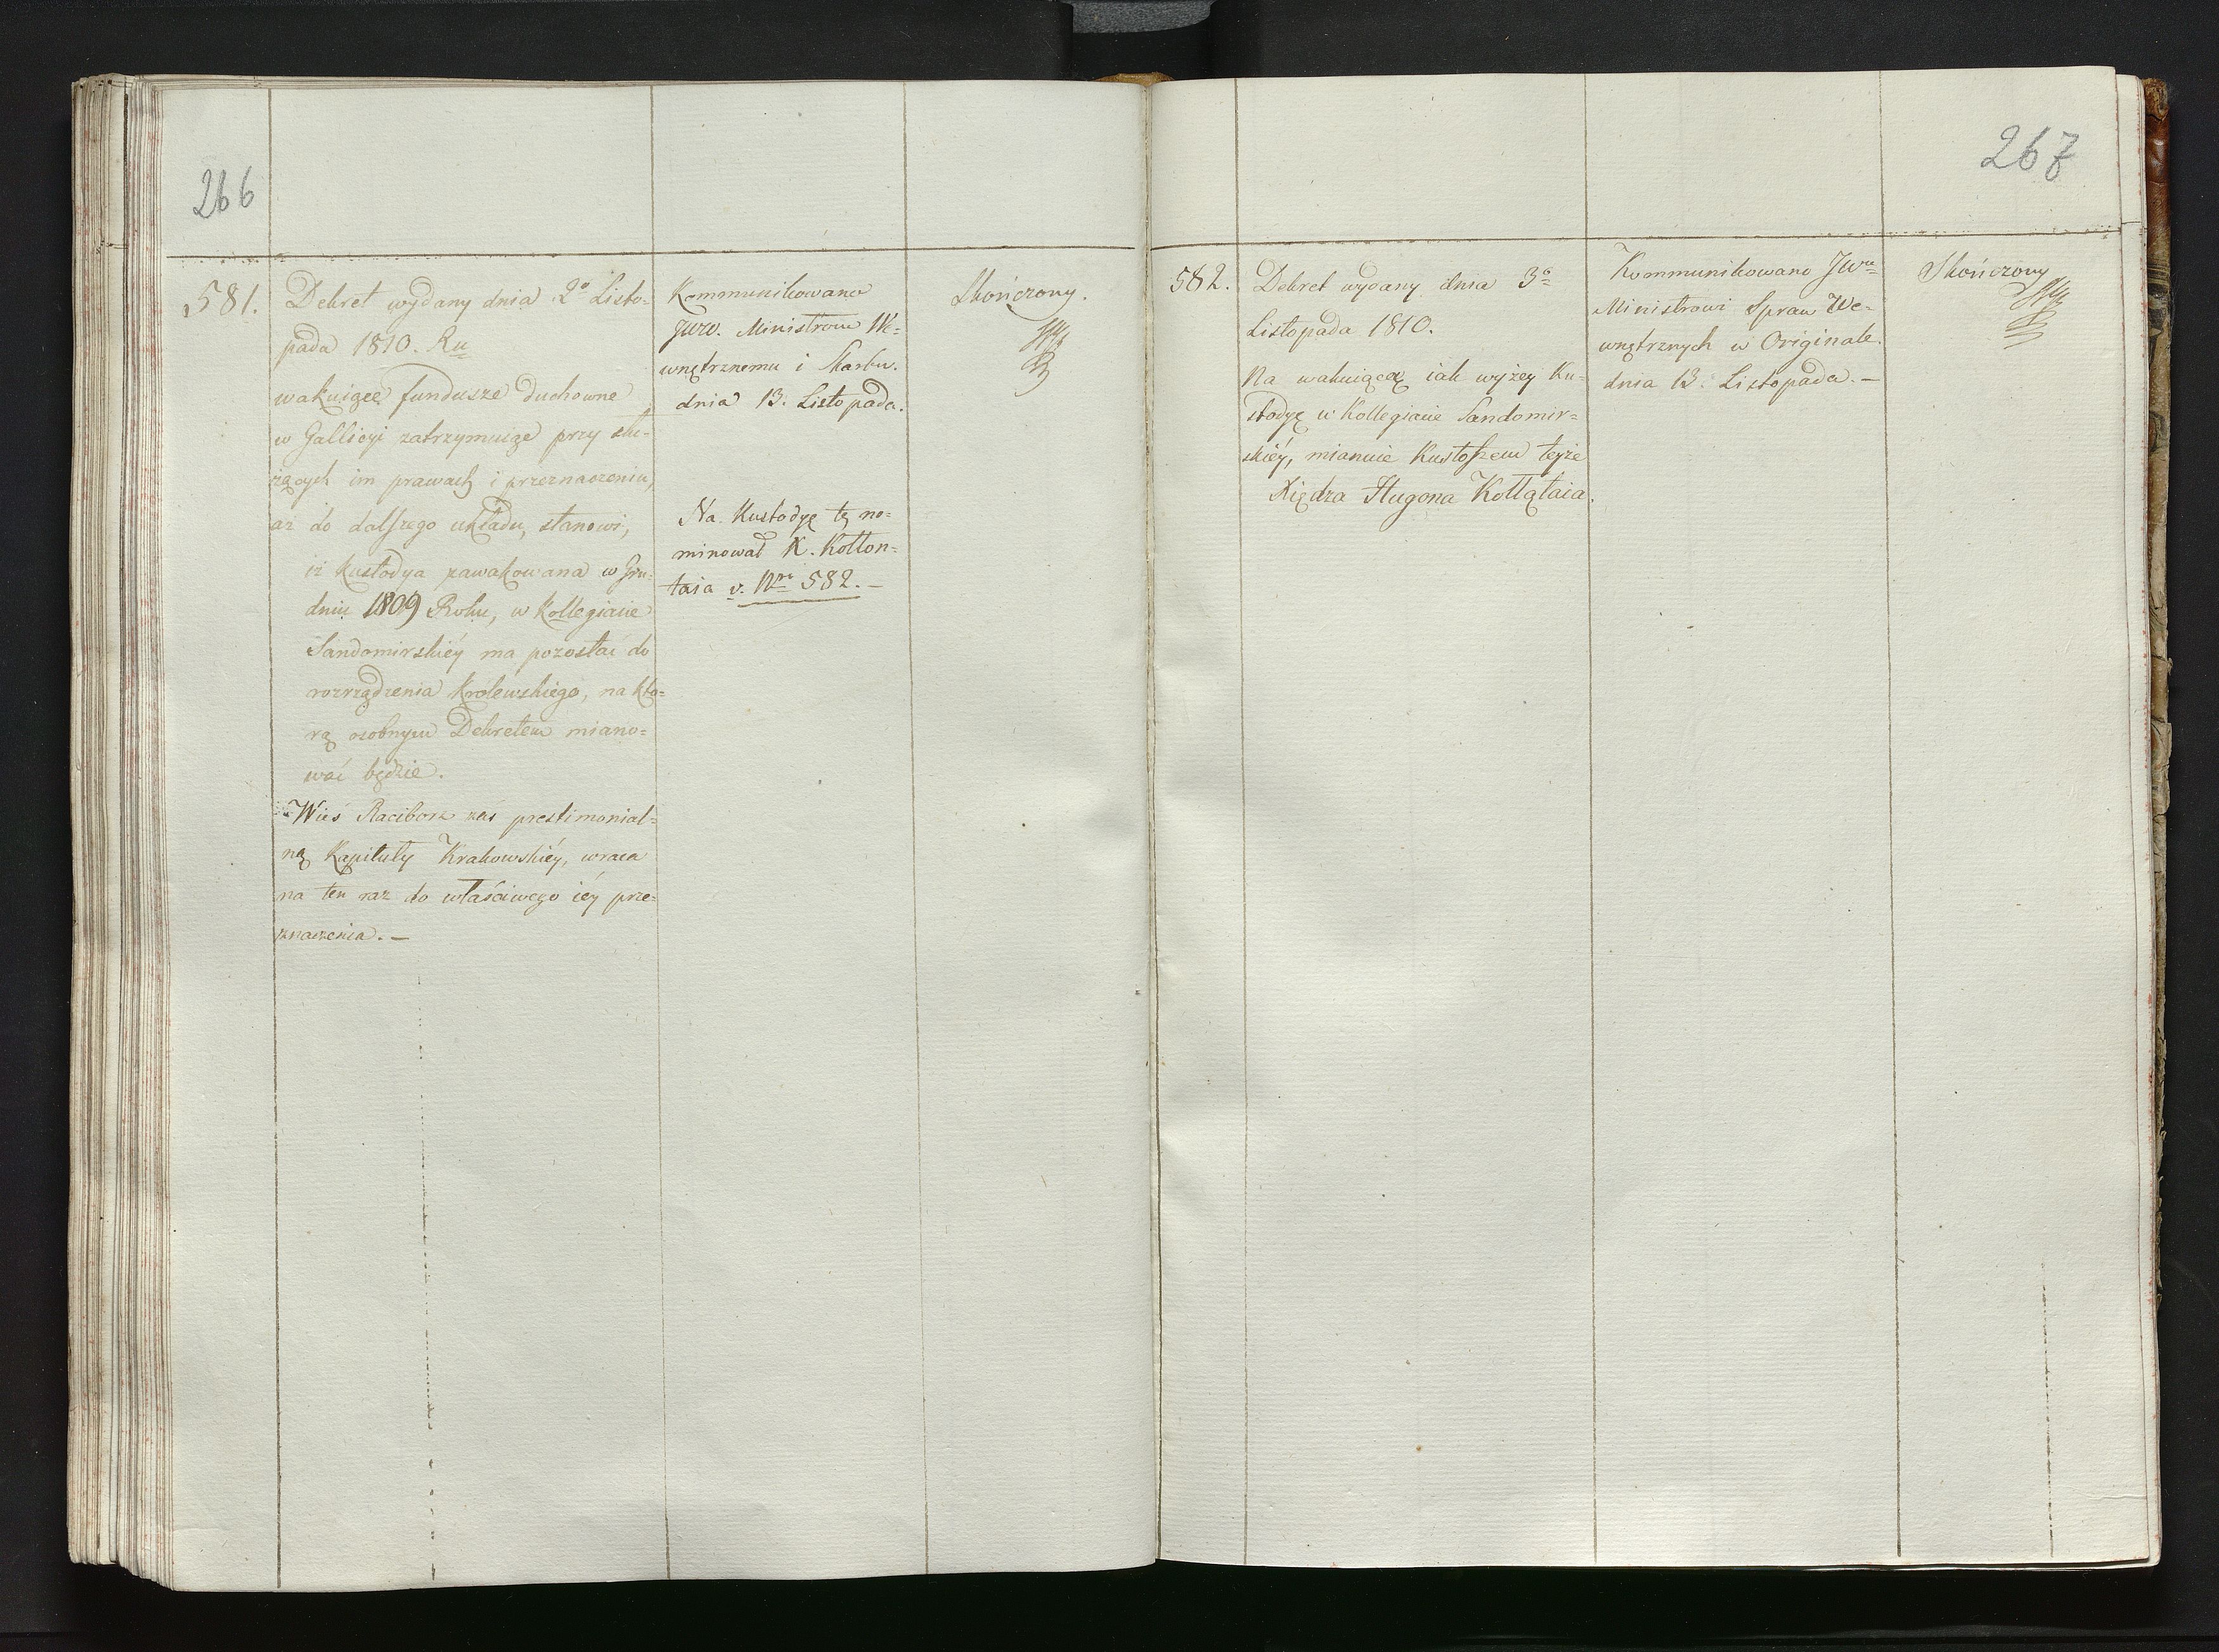 266
581.
Dekret wydany dnia 2º Listo-
pada 1810. Ru
wakuiące fundusze duchowne
w Gallicyi zatrzymuiąc przy słu-
żących im prawach i przeznaczeniu,
aż do dalszego układu, stanowi,
iż Kustodya zawakowana w Gru-
dniu 1809 Roku, w Kollegiacie
Sandomirskiéy ma pozostać do
rozrządzenia Królewskiego, na któ-
rą osobnym Dekretem miano-
wać będzie.
Wieś Raciborz zaś prestimonial-
ną Kapituły Krakowskiéy, wraca
na ten raz do właściwego iéy prze-
znaczenia. —
Kommunikowano
JWW. Ministrom We-
wnętrznemu i Skarbu.
dnia 13. Listopada.
Na Kustodyę tę no-
minował X. Kołłon-
taia v. Nri 582. —
Skończony.
267
582.
Dekret wydany dnia 3º
Listopada 1810.
Na wakuiącą iak wyżey Ku-
stodyę w Kollegiacie Sandomir-
skiéy, mianuie Kustoszem teyże
Xiędza Hugona Kołłątaia.
Kommunikowano JWmu
Ministrowi Spraw We-
wnętrznych w Originale.
dnia 13. Listopada. —
Skończony